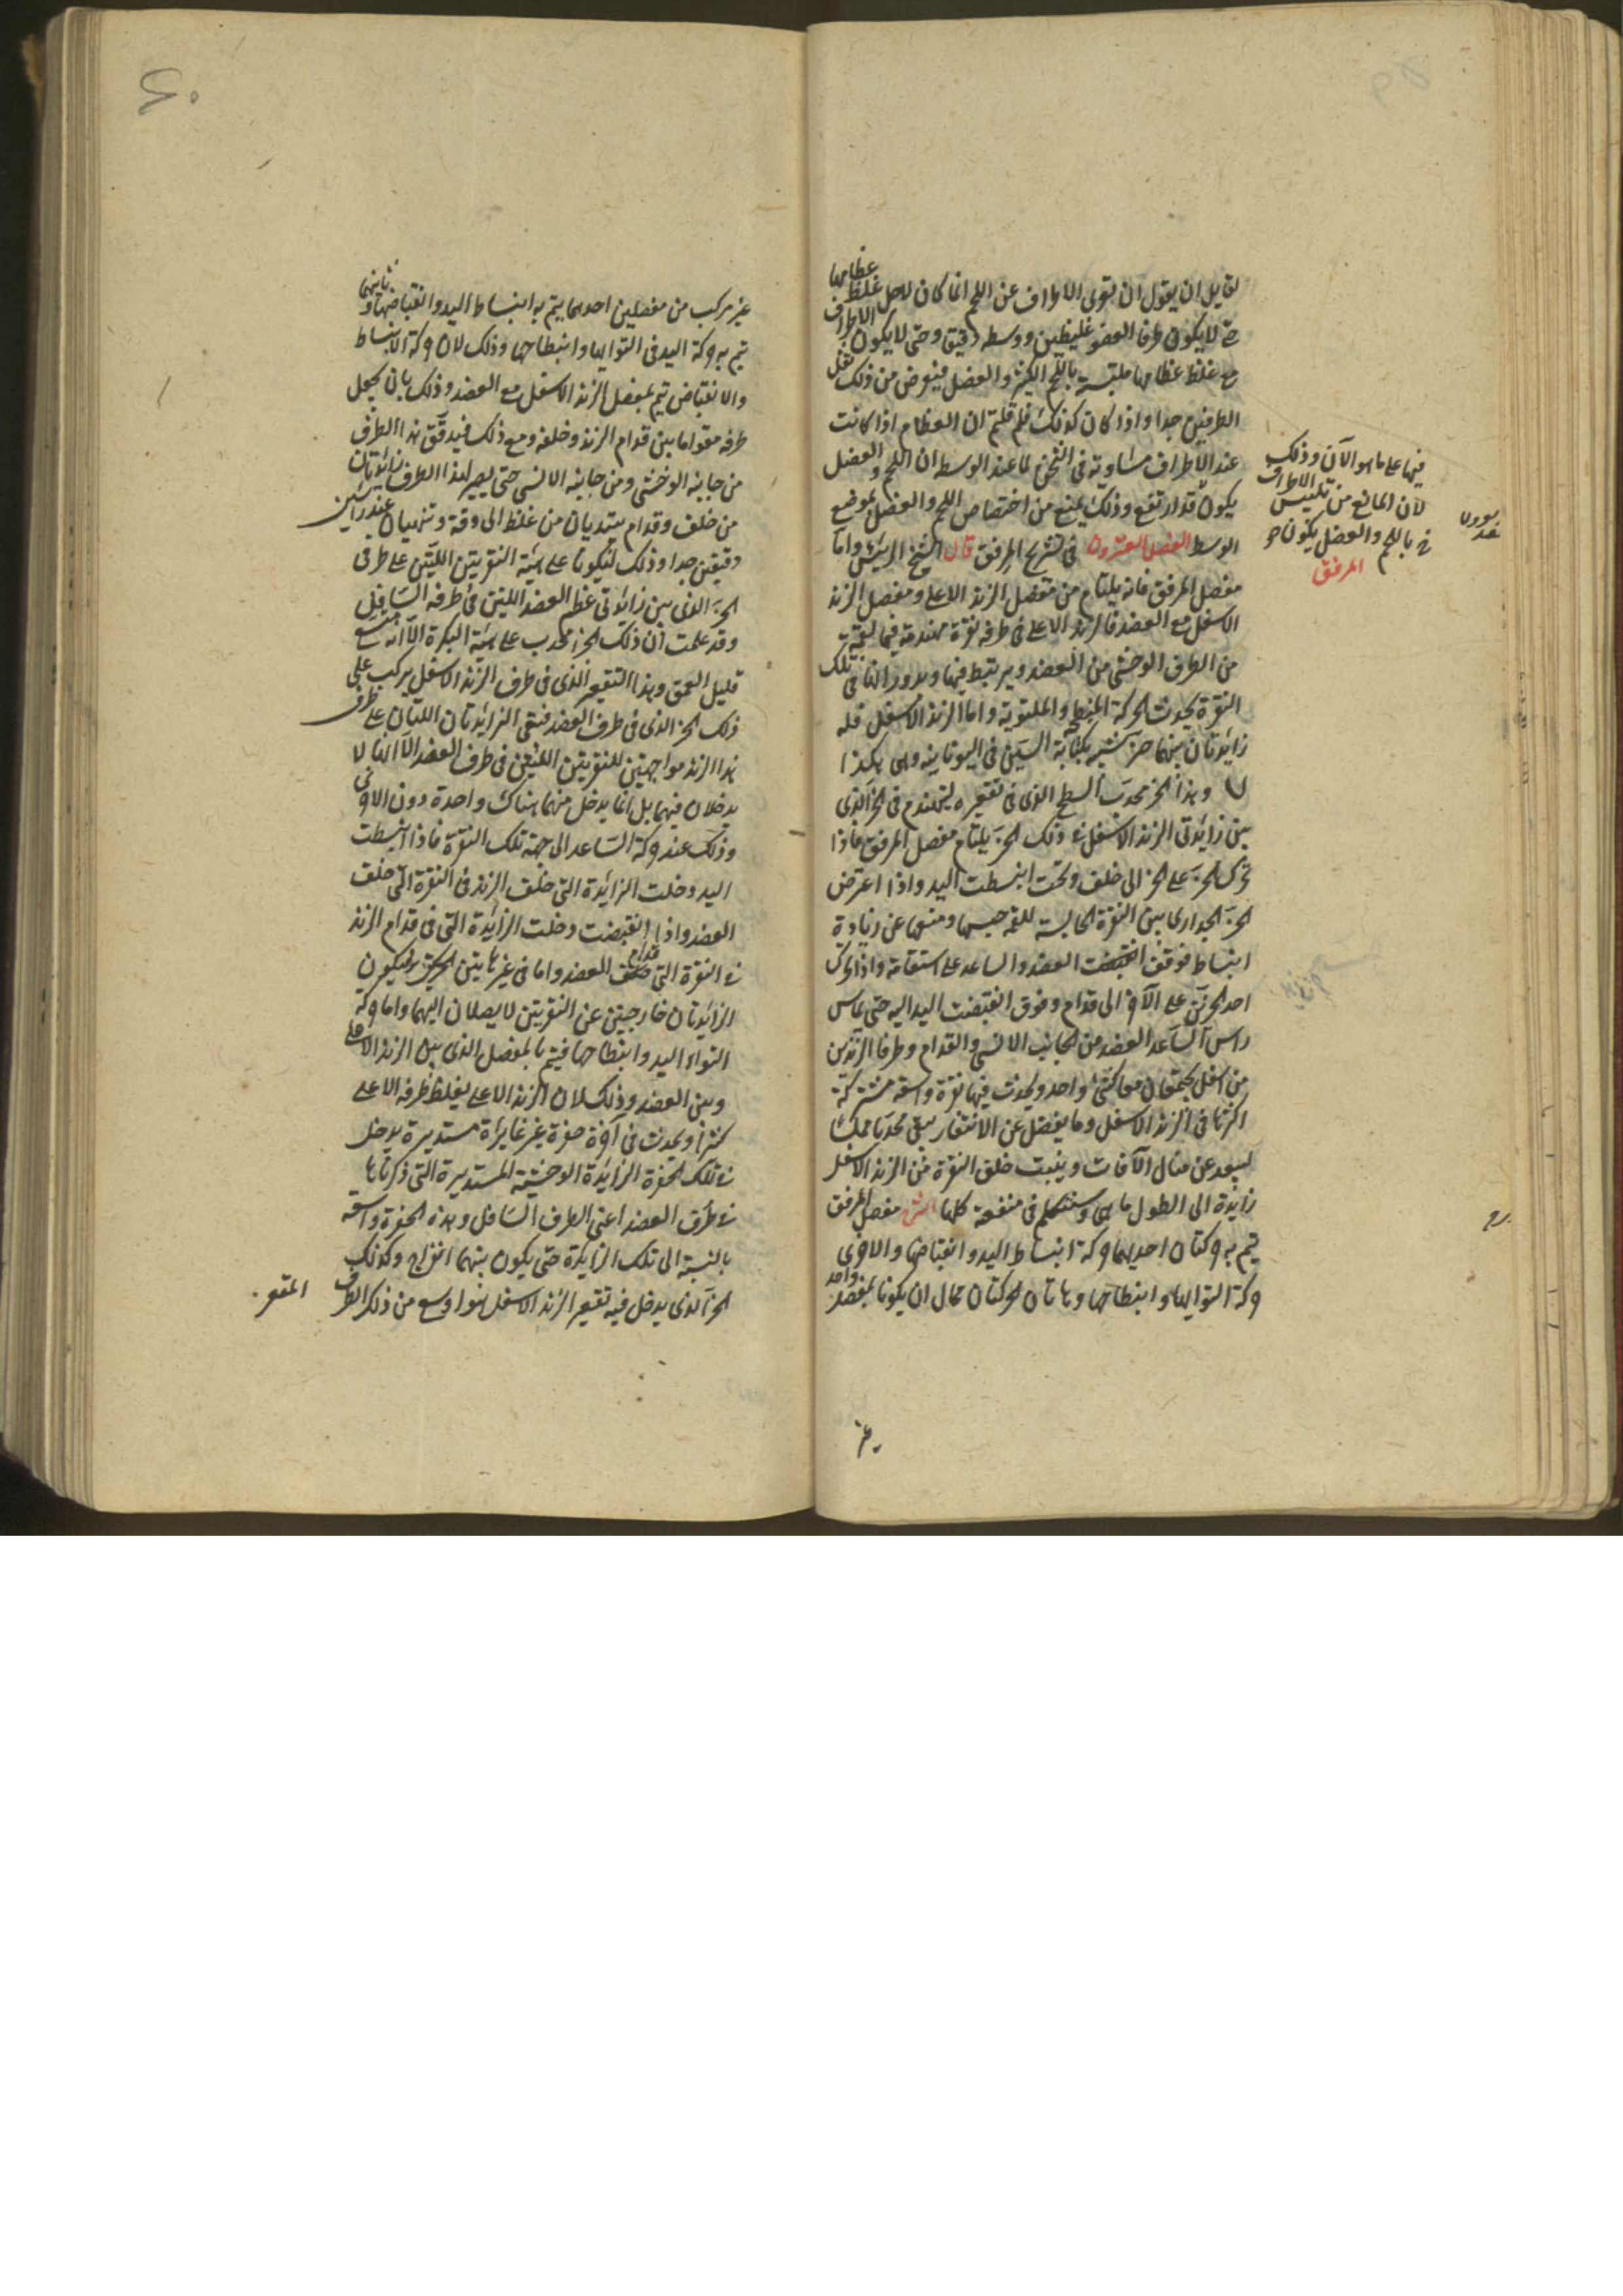 لقايل ان يقول ان تعرى الاطراف عن اللحم انما كان لاجل غلظ عظامها
حتى لا يكون طرفا العضو غليظين ووسطه دقيق وحتى لا يكون الاطراف
مع غلظ عظامها ملتبسة باللحم الكثير والعضل فيعرض من ذلك ثقل
الطرفين جدا واذا كان كذلك فلم قلتم ان العظام اذا كانت
عند الاطراف مساوية فى الثخن لما عند الوسط ان اللحم والعضل
يكون قد ارتفع وذلك يمنع من اختصاص اللحم والعضل بموضع
الوسط الفصل العشرون فى تشريح المرفق قال الشيخ الرئيس واما
مفصل المرفق فانه يلتام من مفصل الزند الاعلى ومفصل الزند
الاسفل مع العضد فالزند الاعلى فى طرفه نقرة مهندمة فيها لقمة
من الطرف الوحشى من العضد ويرتبط فيها وبدورانها فى تلك
النقرة يحدث الحركة المنبطحة والملتوية واما الزند الاسفل فله
زايدتان بينهما حز شبيه بكتابة السين فى اليونانية وهى هكذا
وهذا الحز محدب السطح الذى فى تقعيره ليتهندم فى الحز الذى
بين زايدتى الزند الاسفل فى ذلك الحز يلتام مفصل المرفق فاذا
تحرك الحز على الحز الى خلف وتحت انبسطت اليد واذا اعترض
الحز الجدارى من النقرة الحابسة للقمة حبسها ومنعها عن زيادة
انبساط فوقف العضد والساعد على استقامة واذا تحرك
احد الحزين على الآخر الى قدام وفوق انقبضت اليد اليه حتى يماس
راس الساعد العضد من الجانب الانسى والقدام وطرفا الزندين
من اسفل يجتمعان معا كشئ واحد ويحدث فيهما نقرة واسعة مشتركة
اكثرها فى الزند الاسفل وما يفضل عن الانتقار يبقى محدبا مملسا
ليبعد عن منال الآفات وينبت خلف النقرة من الزند الاسفل
زايدة الى الطول ما هى وسنتكلم فى منفعة كلها الشرح مفصل المرفق
تتم به حركتان احديهما حركة انبساط اليد وانقباضها والاخرى
حركة التوايها وانبطاحها وهاتان الحركتان محال ان يكونا بمفصل واحد
فيها على ما هو الآن وذلك
لان المانع من تلبيس الاطراف
باللحم والعضل يكون
المرفق
غير
غير مركب من مفصلين احدهما يتم به انبساط اليد وانقباضها وثانيهما
تتم به حركة اليد فى التوايها وانبطاحها وذلك لان حركة الانبساط
والانقباض تتم بمفصل الزند الاسفل مع العضد وذلك بان يجعل
طرفه مقوا ما بين قدام الزند وخلفه ومع ذلك فيدقق هذا الطرف
من جانبه الوحشى ومن جانبه الانسى حتى يصير لهذا الطرف زايدتان
من خلف وقدام يبتديان من غلظ الى دقة وتنتهيان عند راسين
دقيقين جدا وذلك ليكونا على هيئة النقرتين اللتين على طرفى
الحز الذى بين زايدتى عظم العضد اللتين فى طرفه السافل
وقد علمت ان ذلك الحز محدب على هيئة البكرة الا انه متسع
قليل العمق وهذا التقعير الذى فى طرف الزند الاسفل يركب على
ذلك الحز الذى فى طرف العضد فتبقى الزايدتان اللتان على طرف
هذا الزند مواجهتين للنقرتين اللتين فى طرف العضد الا انهما لا
يدخلان فيهما بل انما يدخل منهما هناك واحدة دون الاخرى
وذلك عند حركة الساعد الى جهة تلك النقرة فاذا انبسطت
اليد دخلت الزايدة التى خلف الزند فى النقرة التى خلف
العضد واذا انقبضت دخلت الزايدة التى فى قدام الزند
فى النقرة التى قدام العضد واما فى غير هاتين الحركتين فيكون
الزايدتان خارجتين عن النقرتين لا يصلان اليهما واما حركة
التواء اليد وانبطاحها فيتم بالمفصل الذى بين الزند الاعلى
وبين العضد وذلك لان الزند الاعلى يغلظ طرفه الاعلى
كثيرا ويحدث فى آخره حفرة غير غايرة مستديرة يدخل
فى تلك الحفرة الزايدة الوحشية المستديرة التى ذكرناها
فى طرف العضد اعنى الطرف السافل وهذه الحفرة واسعة
بالنسبة الى تلك الزايدة حتى يكون بينهما انفراج وكذلك
الحز الذى يدخل فيه تقعير الزند الاسفل هو اوسع من ذلك الطرف
المقعر